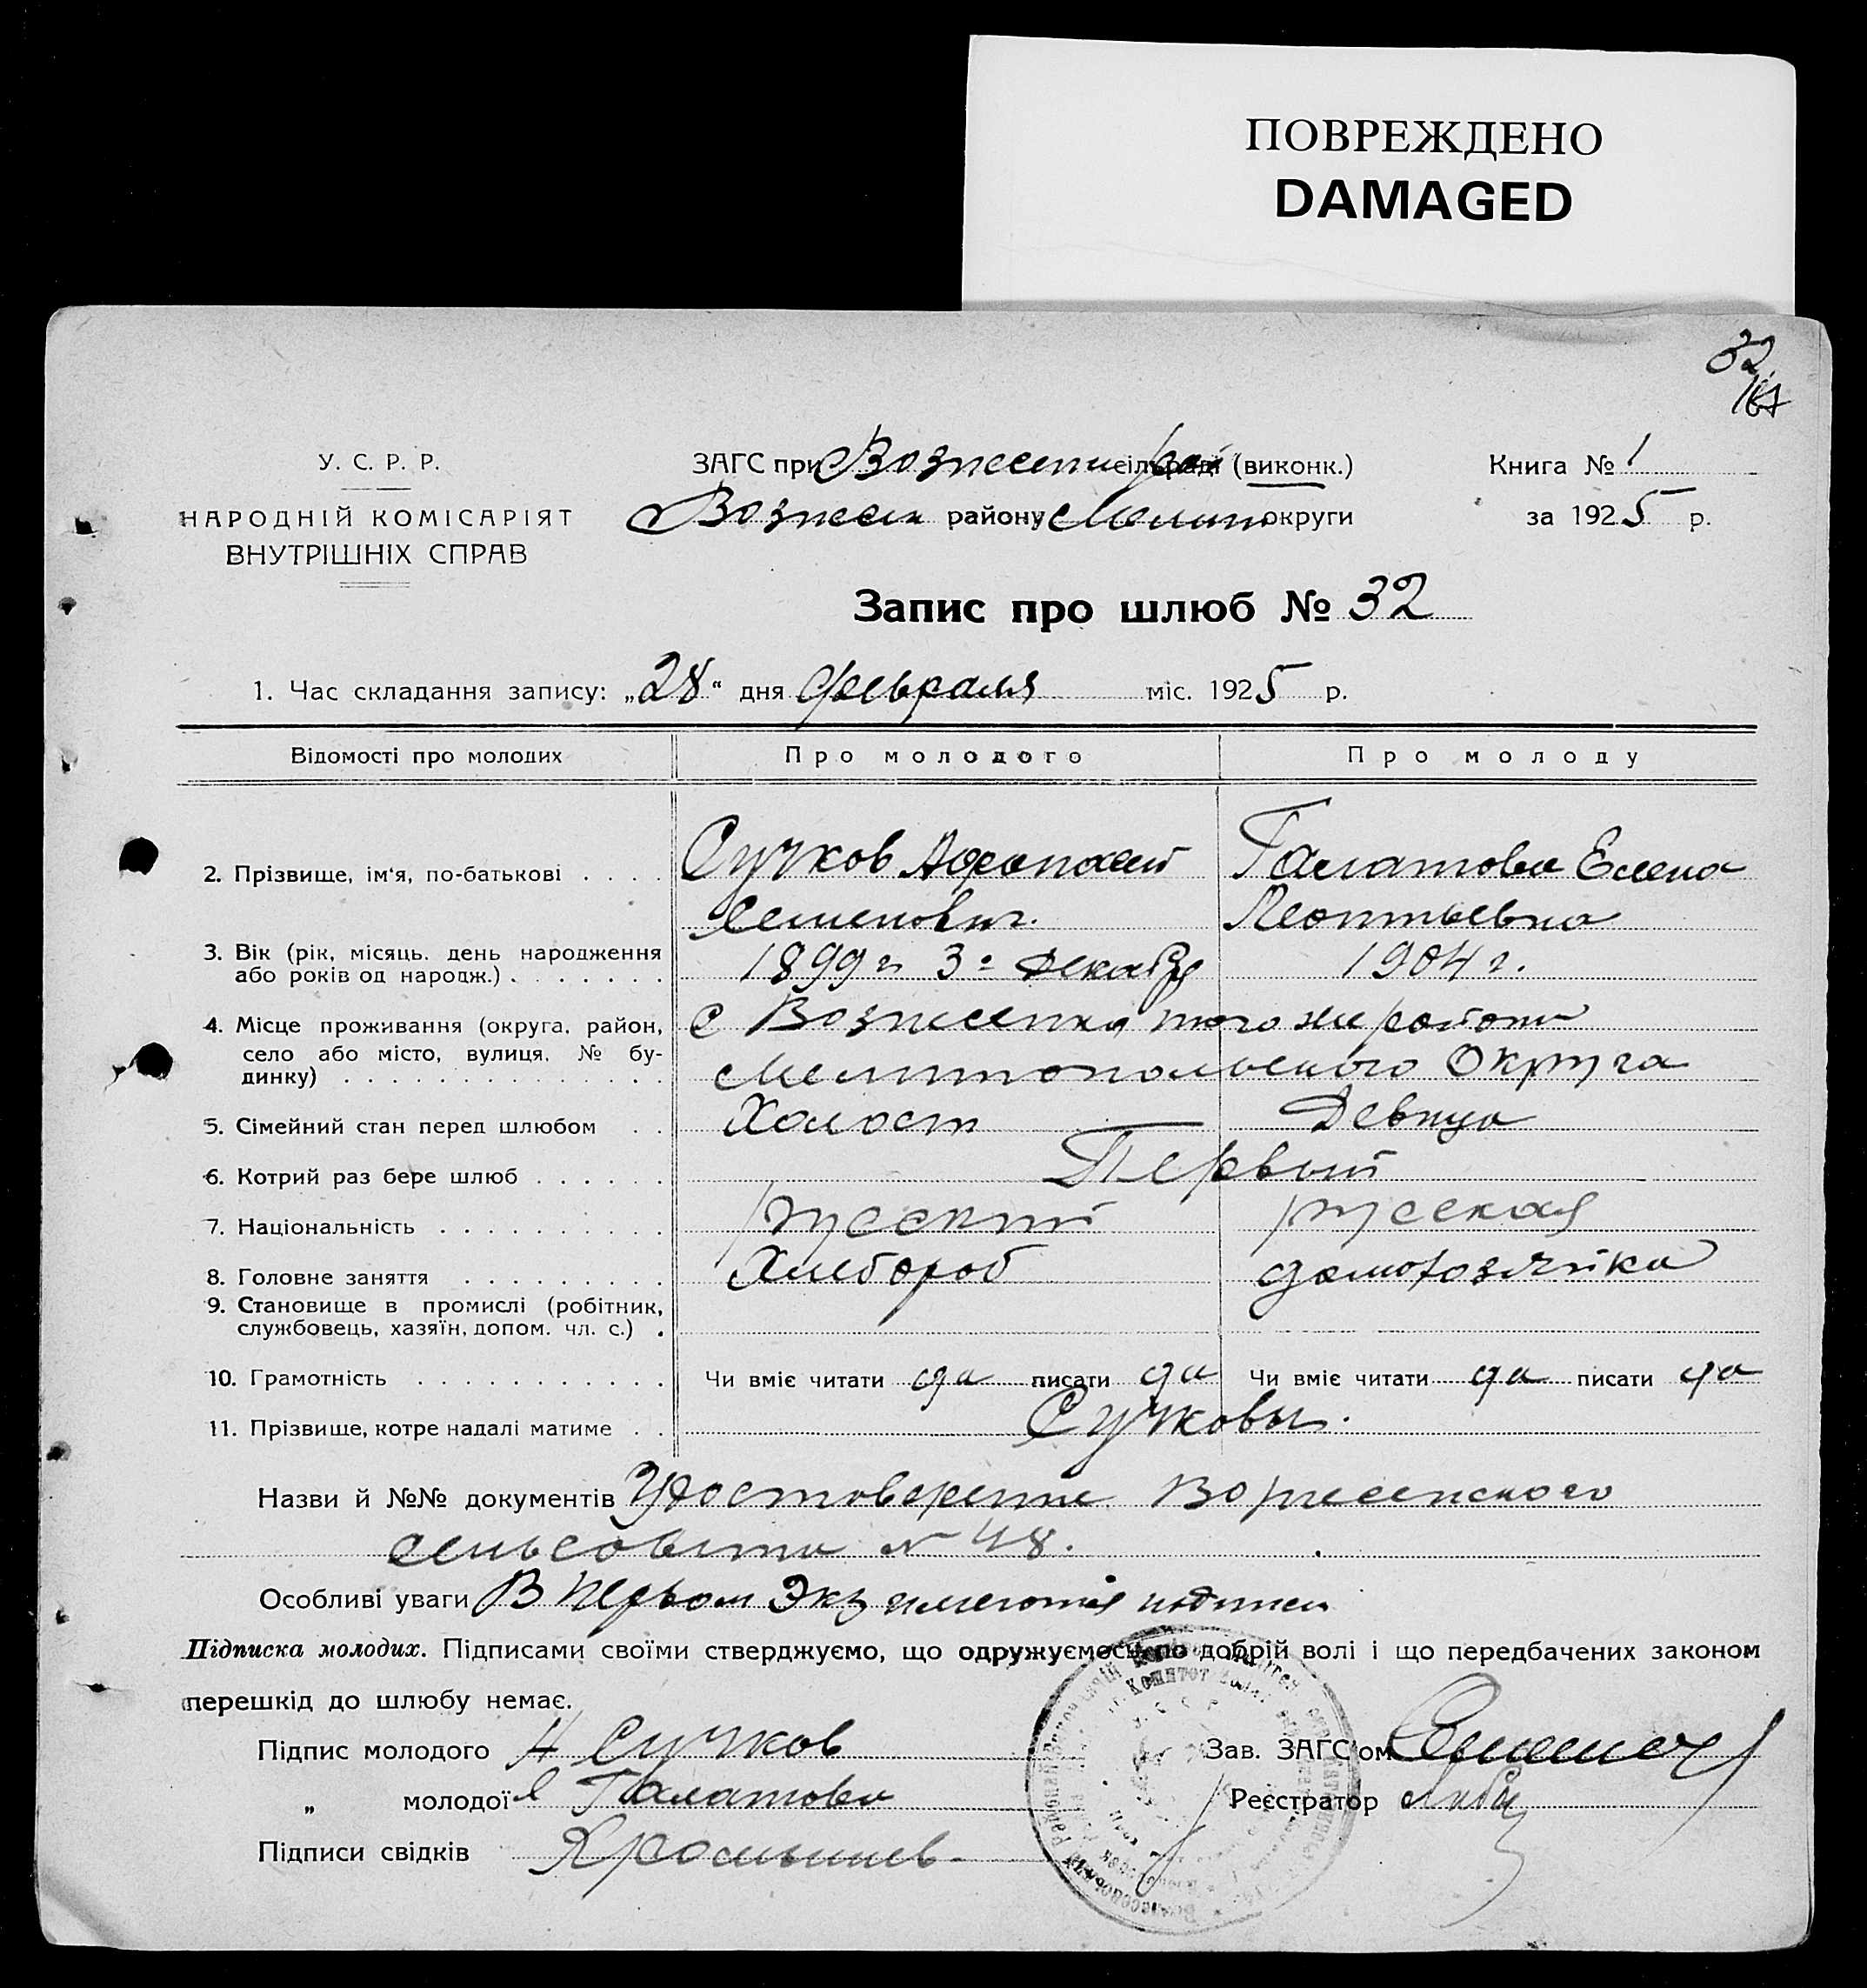 ПОВРЕЖДЕНО
DAMAGED
32
У. С. Р. Р.
НАРОДНІЙ КОМІСАРІЯТ
ВНУТРІШНІХ СПРАВ
ЗАГС при Вознесен рай сільраді (виконк.)
Вознесен району Мелит округи
Книга № 1
за 1925 р.
Запис про шлюб № 32
1. Час складання запису: „28“ дня февраля міс. 1925 р.
Відомості про молодих Про молодого Про молоду
2. Прізвище, ім'я, по-батькові . . . . Сучков Афанасий Галатова Елена
Семенович. Леонтьевна
3. Вік (рік, місяць, день народження
або років од народж.) . . . . . . . 1899 г. 3го декабря 1904 г.
4. Місце проживання (округа, район, с Вознесенка того же района
село або місто, вулиця, № бу-
динку) . . . . . . . . . . . . . . Мелитопольского Округа
5. Сімейний стан перед шлюбом . . Холост Девица
6. Котрий раз бере шлюб . . . . . . Первый
7. Національність . . . . . . . . . . русский русская
8. Головне заняття . . . . . . . . . Хлебороб домохозяйка
9. Становище в промислі (робітник,
службовець, хазяїн, допом. чл. с.) .
10. Грамотність . . . . . . . . . . . Чи вміє читати да писати да Чи вміє читати да писати да
11. Прізвище, котре надалі матиме . . Сучковы.
Назви й №№ документів Удостоверение Вознесенского
сельсовета № 48.
Особливі уваги В первом Экз имеются подписи
Підписка молодих. Підписами своїми стверджуємо, що одружуємось по добрій волі і що передбачених законом
перешкід до шлюбу немає.
Підпис молодого А Сучков Зав. ЗАГС'ом
„ молодої Галатова Реєстратор
Підписи свідків